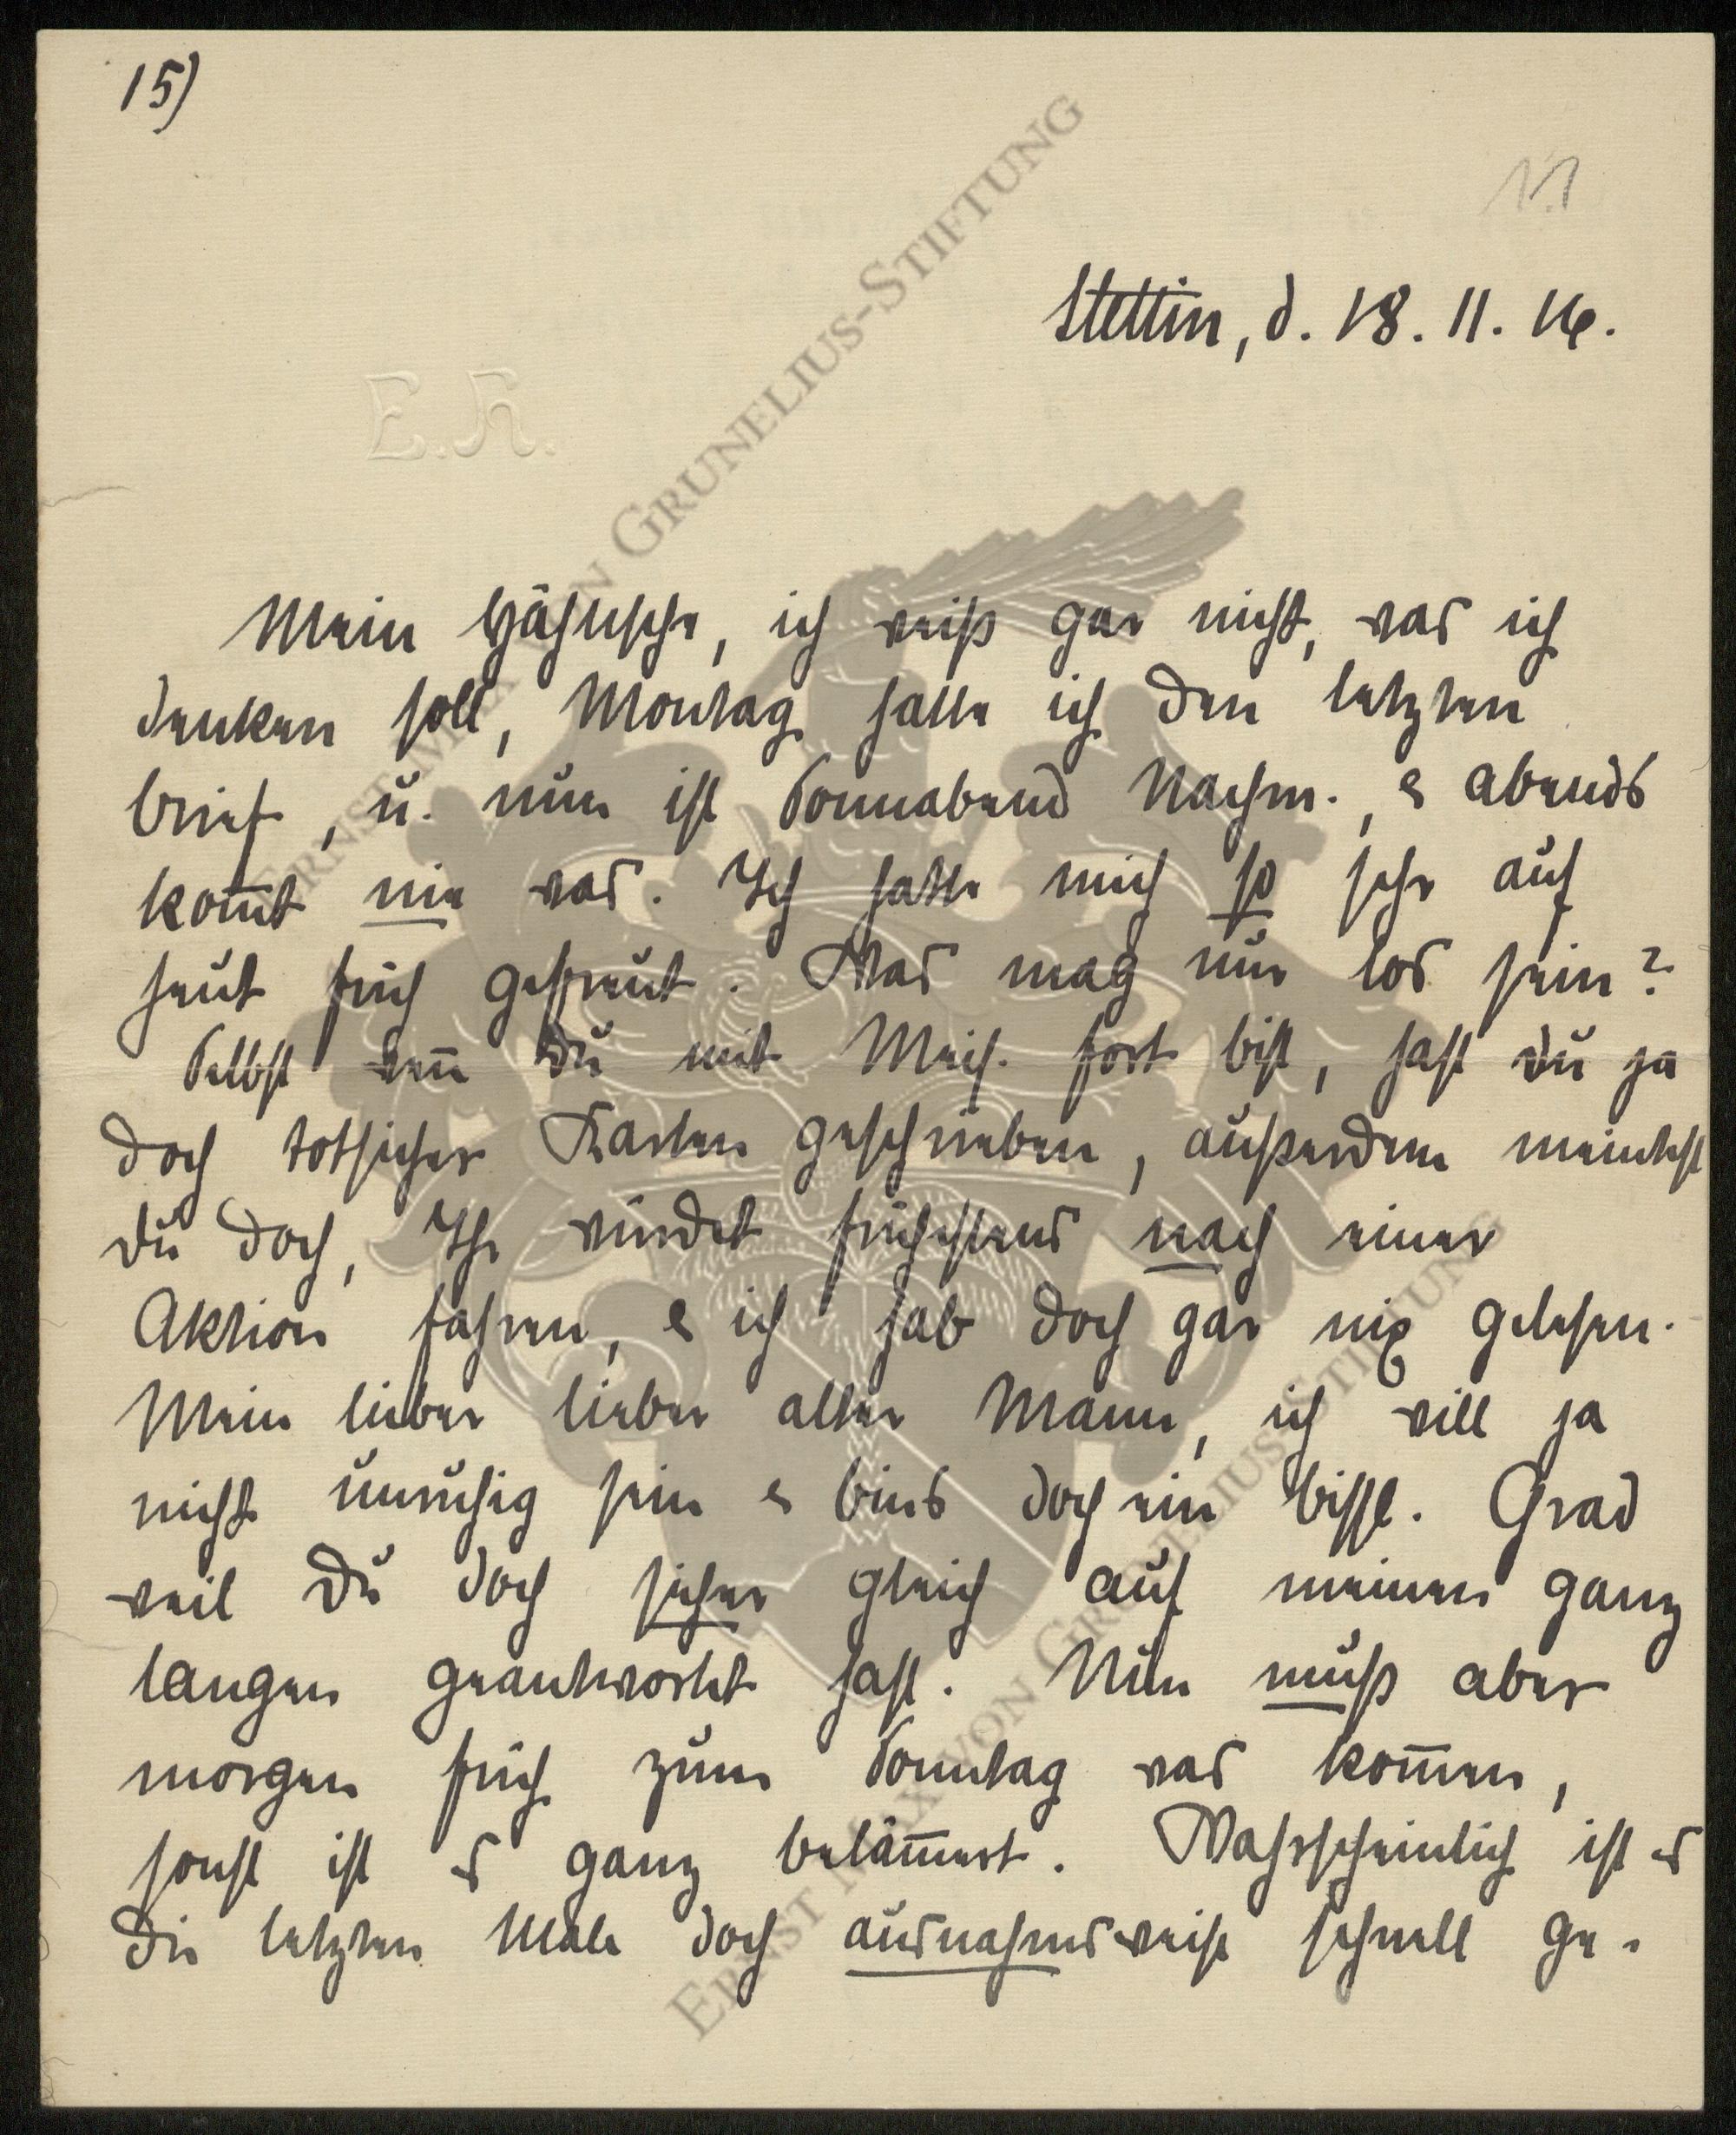 15)
11
Stettin, d. 18. 11. 16.
E.K.
Mein Hähnsche, ich weiß gar nicht, was ich
denken soll, Montag hatte ich den letzten
Brief, u. nun ist Sonnabend Nachm., & abends
kom̅t nie was. Ich hatte mich so sehr auf
heut früh gefreut. Was mag nur los sein?
Selbst wen̅ Du mit Meis. fort bist, hast Du ja
doch totsicher Karten geschrieben, außerdem meintest
Du doch, Ihr würdet frühestens nach einer
Aktion fahren, & ich hab doch gar nix gelesen.
Mein lieber lieber alter Mann, ich will ja
nicht unruhig sein & bins doch ein bissl. Grad
weil Du doch sicher gleich auf meinen ganz
langen geantwortet hast. Nun muß aber
morgen früh zum Sonntag was kom̅en,
sonst ist es ganz beläm̅ert. Wahrscheinlich ist es
die letzten Male doch ausnahmsweise schnell ge-
ERNST MAX VON GRUNELIUS-STIFTUNG
ERNST MAX VON GRUNELIUS-STIFTUNG